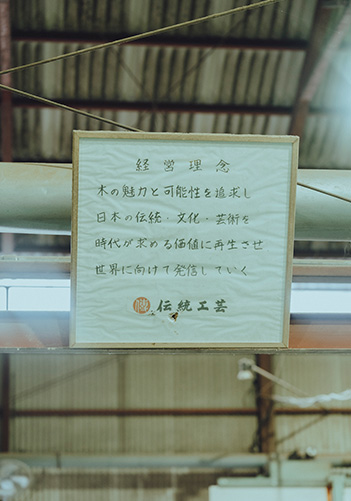 経営理念
木の魅力と可能性を追求し
日本の伝統・文化・芸術を
時代が求める価値に再生させ
世界に向けて発信していく
伝統工芸